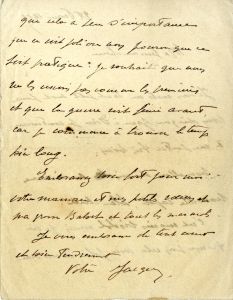 que cela a peu d'importance
que ce soit joli ou non pourvu que ce
soit pratique : je souhaite que nous
ne les usions pas comme les premiers
et que la guerre soit finie avant
car je commence à trouver le temps
bien long.
Embrassez bien fort pour moi
votre maman et mes petites
ma grosse et tout le
Je vous embrasse de tout cœur
et bien tendrement
Votre Jacques